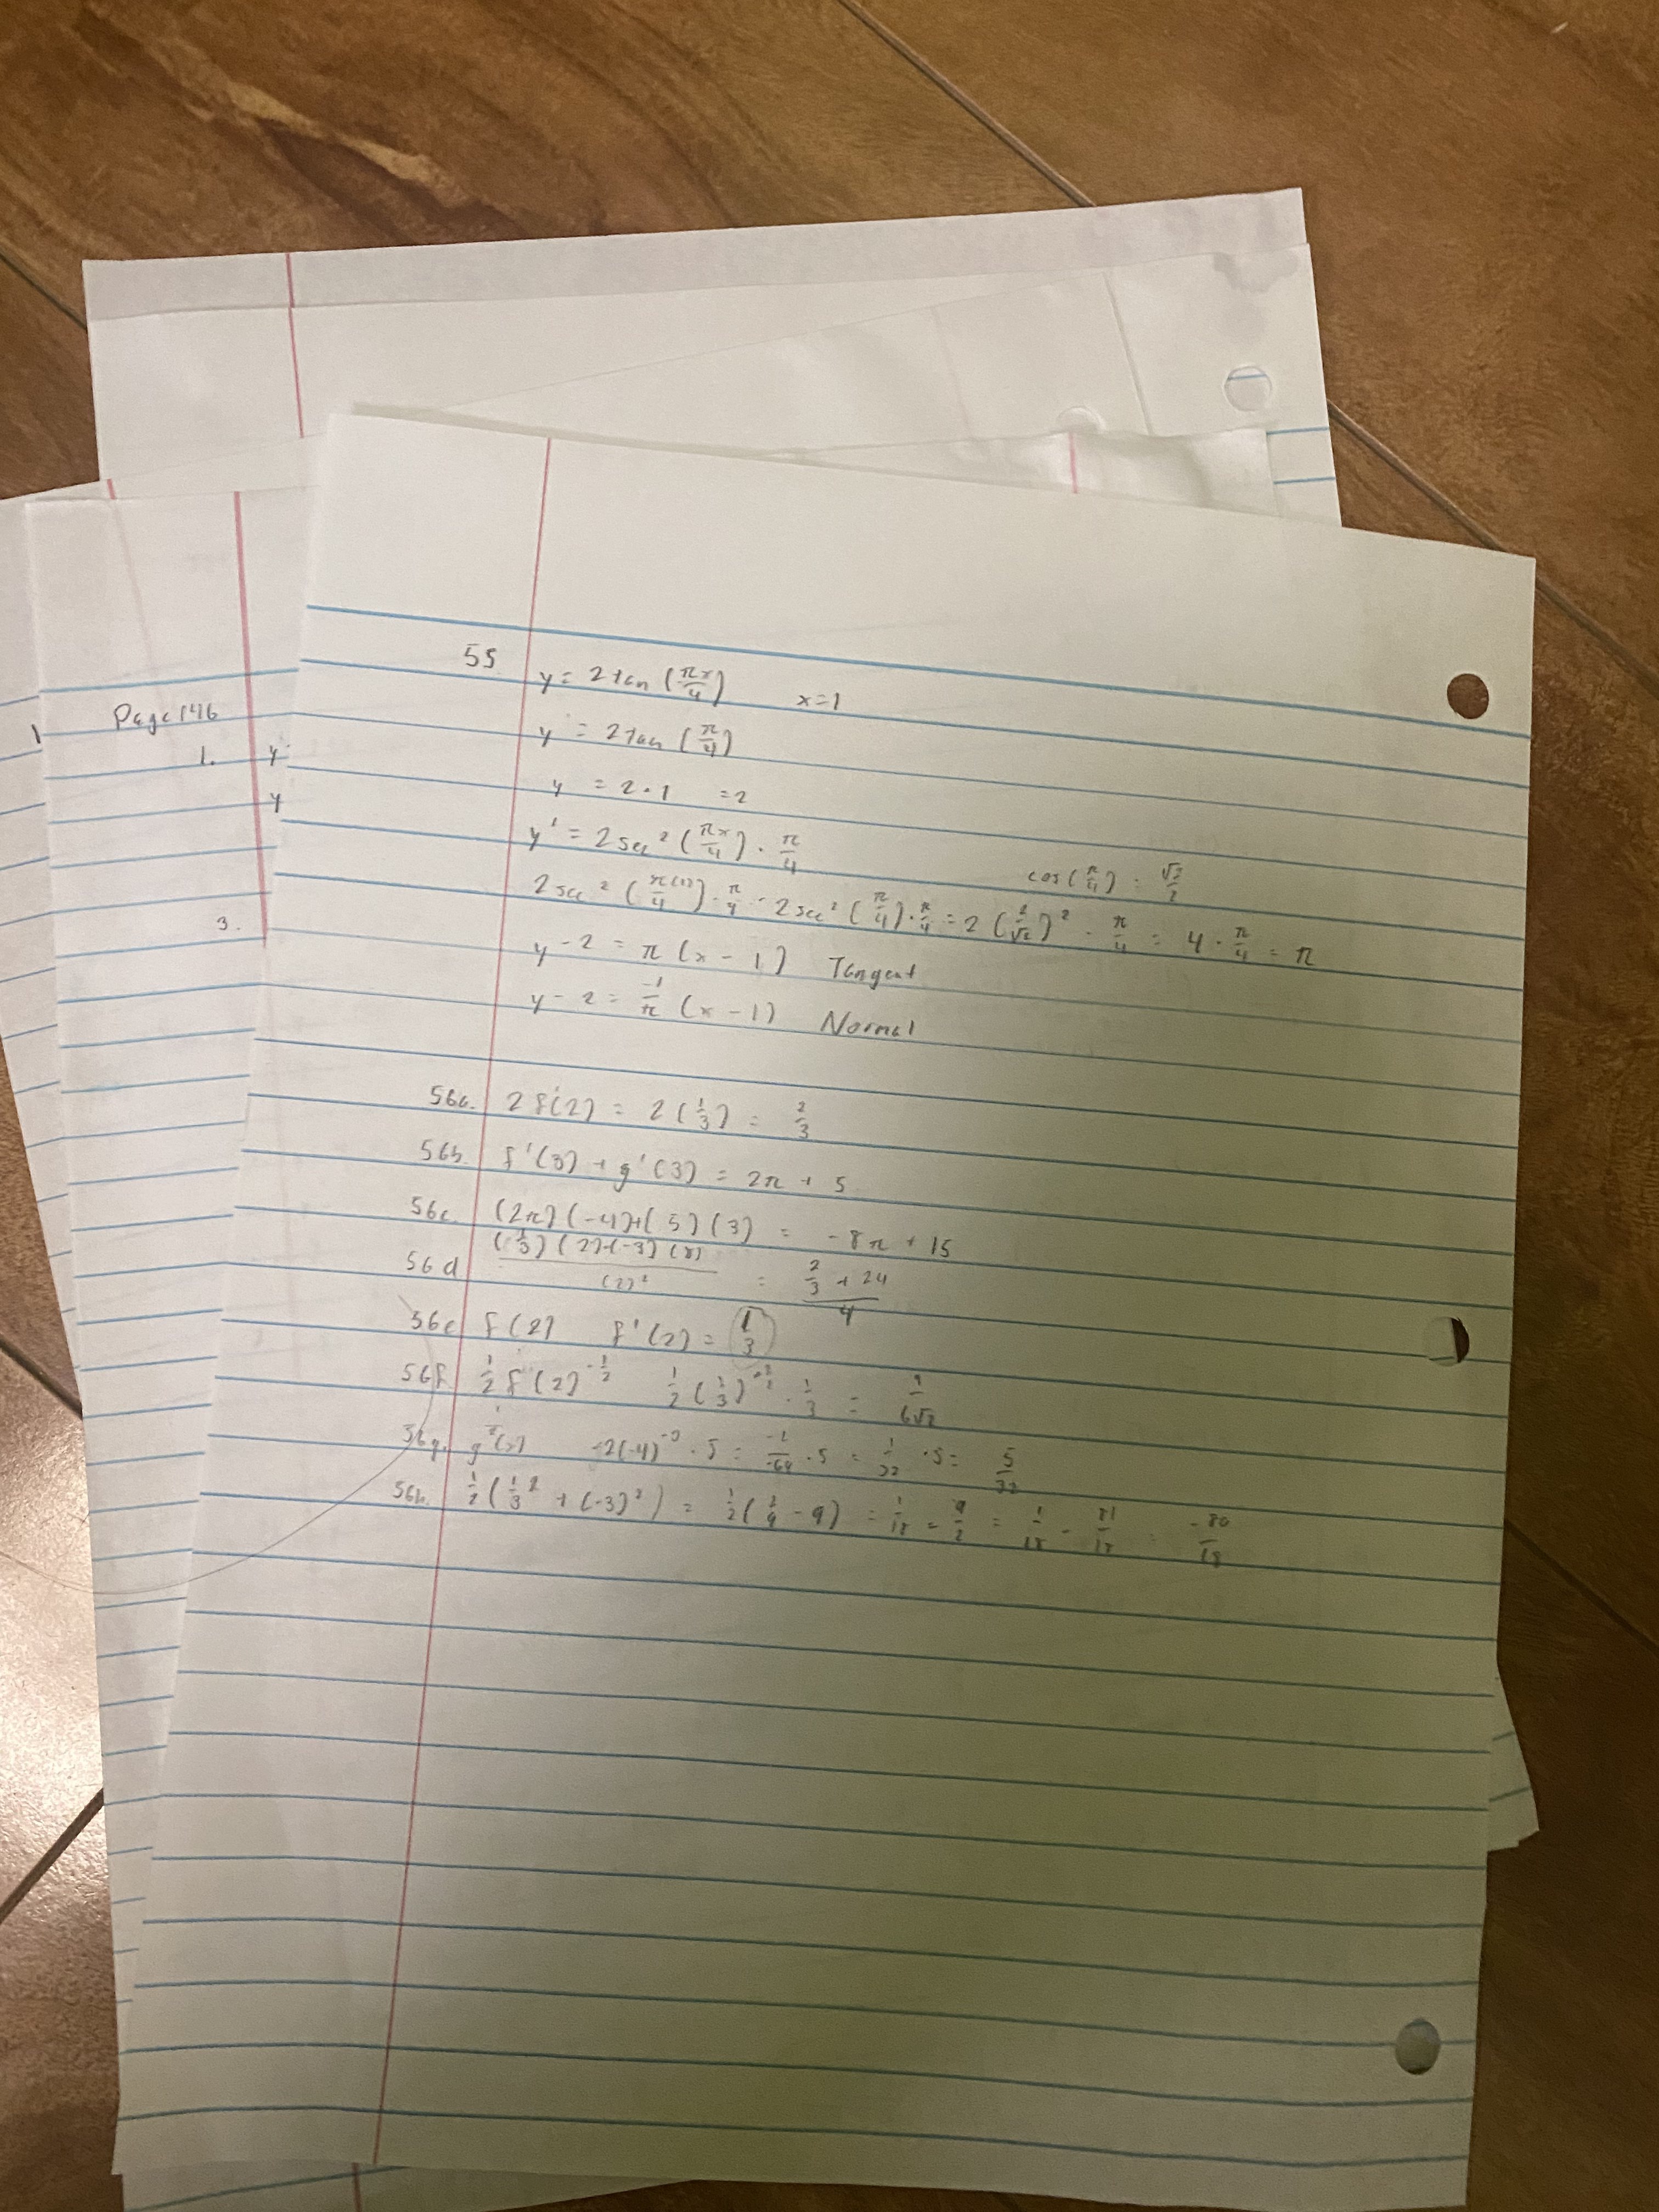 Page 146
1. y
y
3.
55 y = 2 tan (πx/4) x=1
y = 2 tan (π/4)
y = 2 · 1 = 2
y' = 2 sec² (πx/4) · π/4
cos(π/4) = √2/2
2 sec² (π(1)/4) · π/4 = 2 sec² (π/4) · π/4 = 2 (2/√2)² · π/4 = 4 · π/4 = π
y - 2 = π (x - 1) Tangent
y - 2 = -1/π (x - 1) Normal
56a. 2 f'(2) = 2 (1/3) = 2/3
56b. f'(3) + g'(3) = 2π + 5
56c. (2π)(-4)+(5)(3) = -8π + 15
56d (1/3)(2)-(-3)(8) / (2)² = 2/3 + 24 / 4
56e f(2) f'(2) = 1/3
56f. 1/2 f(2)^-1/2 1/2 (1/3) · 1/3 = 1/6√2
56g. -2(-4)^-3 · 5 = -2/-64 · 5 = 1/32 · 5 = 5/32
56h. 1/2 (1/3² + (-3)²) = 1/2 (1/9 - 9) = 1/18 - 9/2 = 1/18 - 81/18 = -80/18